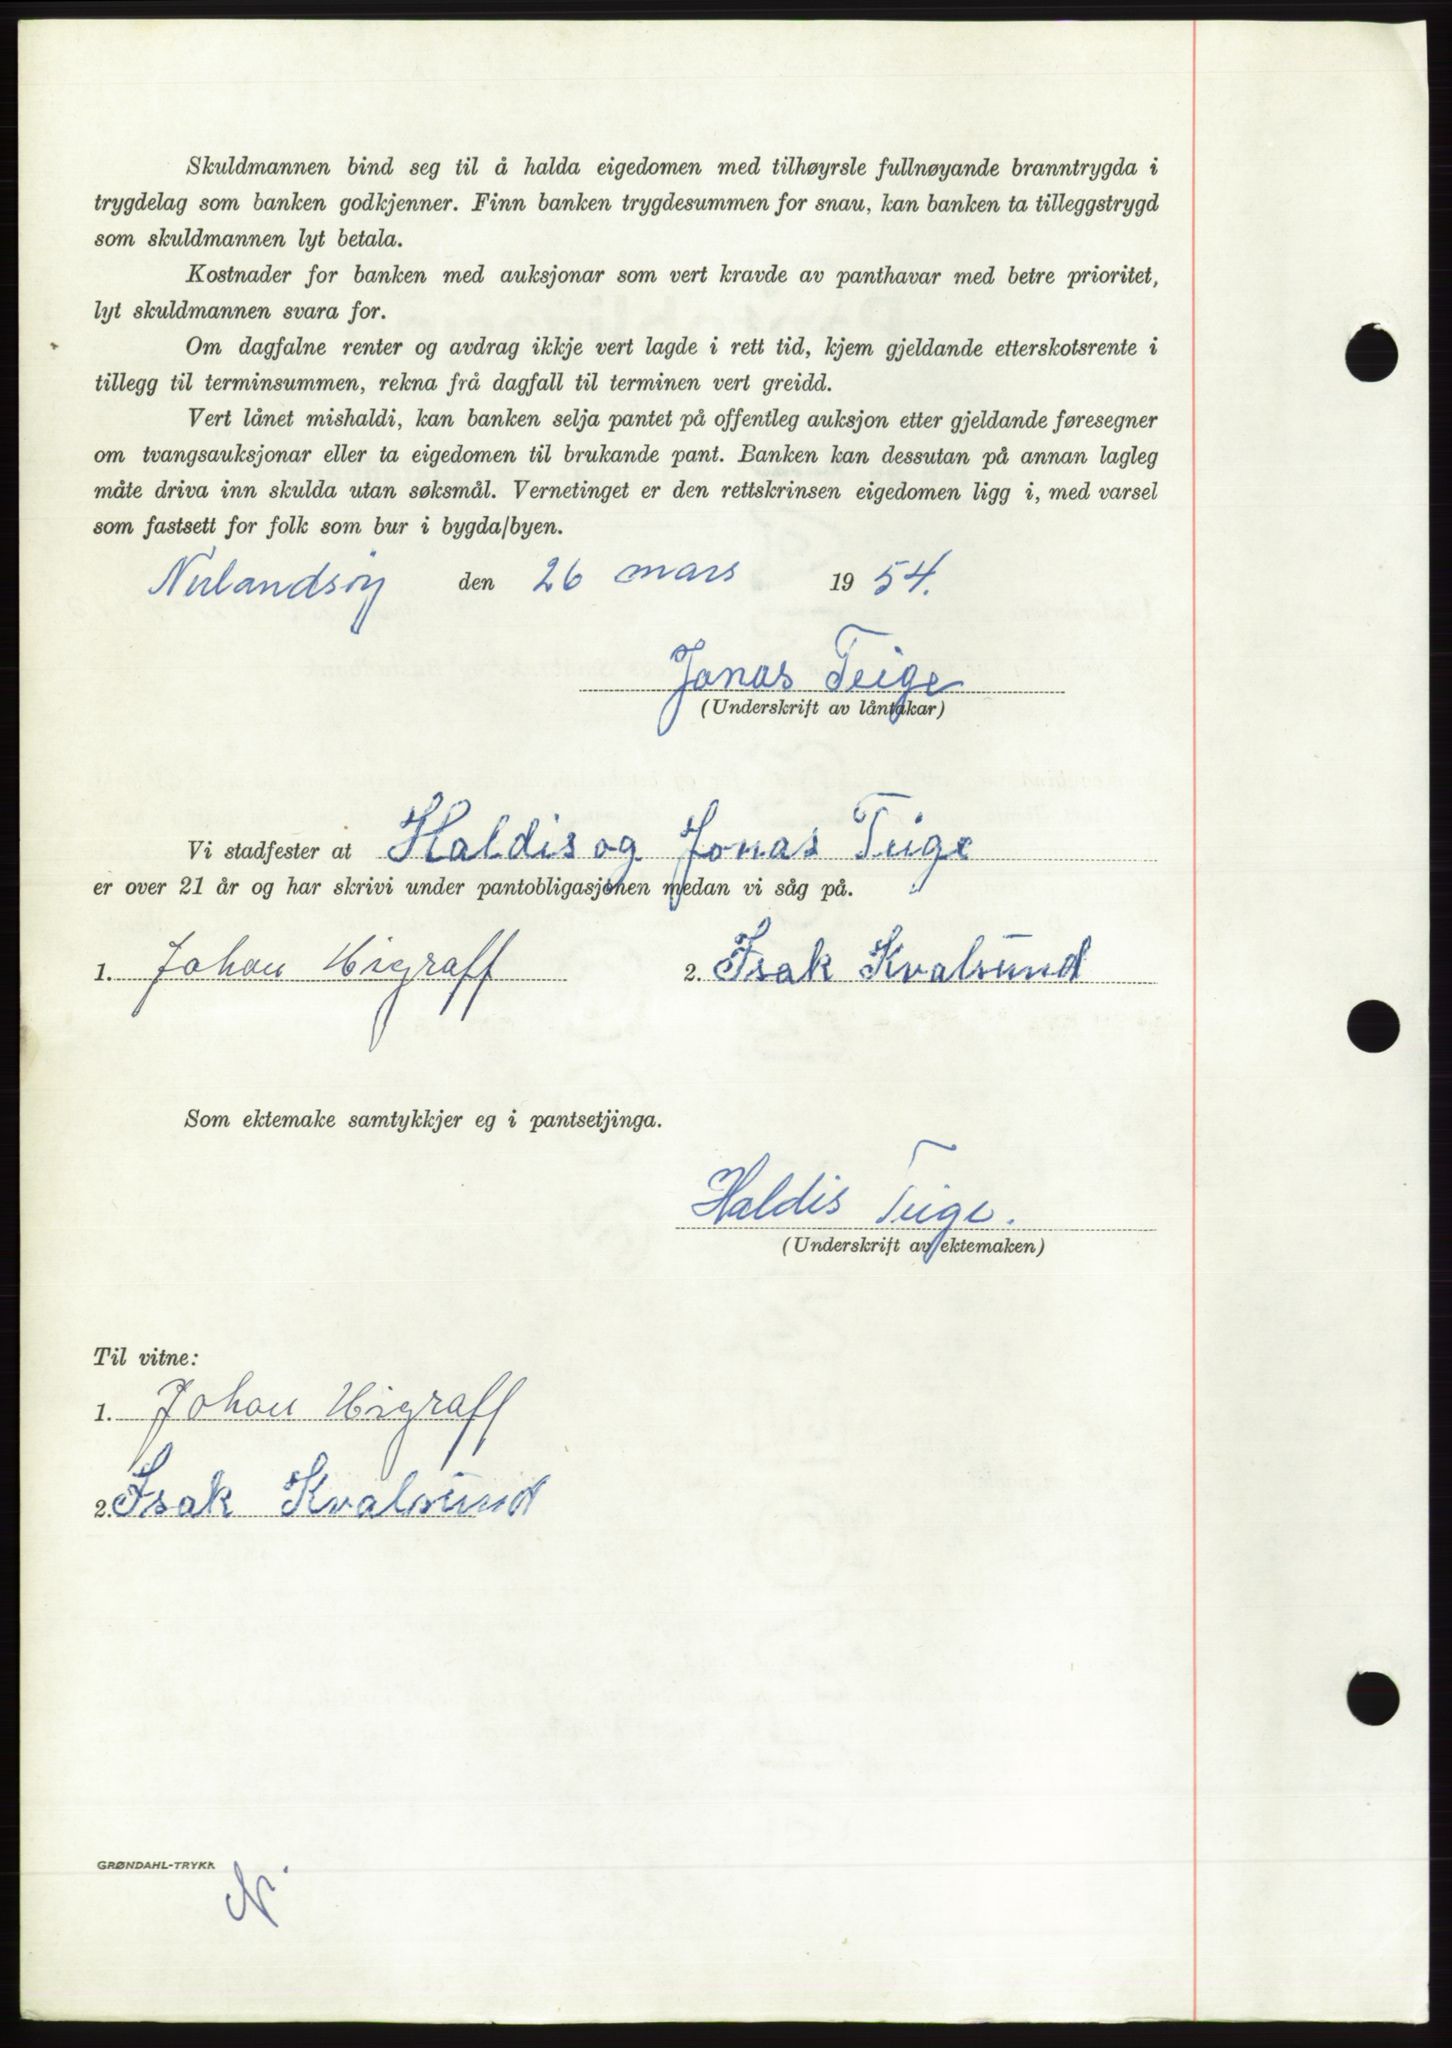 Skuldmannen bind seg til å halda eigedomen med tilhøyrsle fullnøyande branntrygda i
trygdelag som banken godkjenner. Finn banken trygdesummen for snau, kan banken ta tilleggstrygd
som skuldmannen lyt betala.
Kostnader for banken med auksjonar som vert kravde av panthavar med betre prioritet,
lyt skuldmannen svara for.
Om dagfalne renter og avdrag ikkje vert lagde i rett tid, kjem gjeldande etterskotsrente i
tillegg til terminsummen, rekna frå dagfall til terminen vert greidd.
Vert lånet mishaldi, kan banken selja pantet på offentleg auksjon etter gjeldande føresegner
om tvangsauksjonar eller ta eigedomen til brukande pant. Banken kan dessutan på annan lagleg
måte driva inn skulda utan søksmål. Vernetinget er den rettskrinsen eigedomen ligg i, med varsel
som fastsett for folk som bur i bygda/byen.
den 26 mars 1954.
Jonas Teige
(Underskrift av låntakar)
Vi stadfester at Haldis og Jonas Teige
er over 21 år og har skrivi under pantobligasjonen medan vi såg på.
1. Johan Higraff 2. Isak Kvalsund
Som ektemake samtykkjer eg i pantsetjinga.
Haldis Teige.
(Underskrift av ektemaken)
Til vitne:
1. Johan Higraff
2. Isak Kvalsund
GRØNDAHL-TRYKK